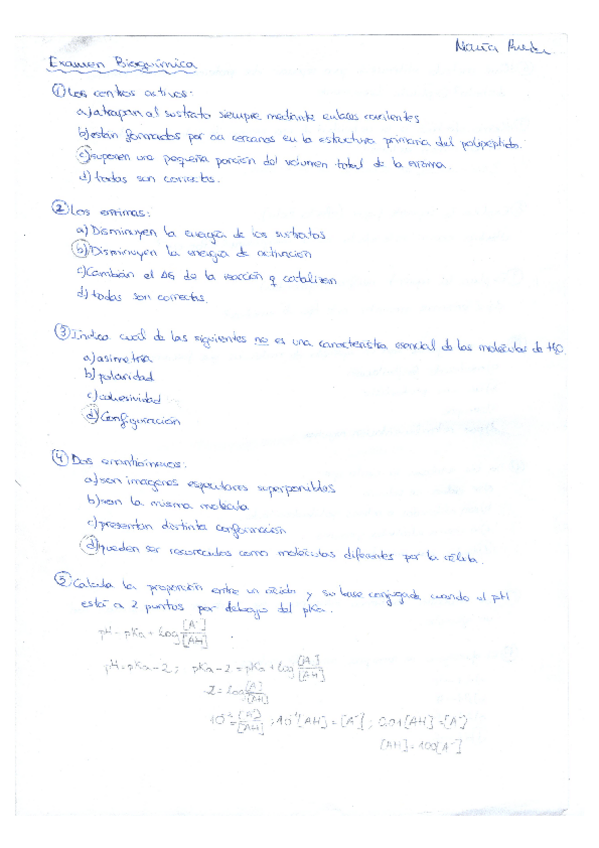 María
Examen Bioquímica
① Los centros activos:
a) atrapan al sustrato siempre mediante enlaces covalentes
b) están formados por aa cercanos en la estructura primaria del polipéptido.
c) suponen una pequeña porción del volumen total de la enzima.
d) todas son correctas.
② Las enzimas:
a) Disminuyen la energía de los sustratos
b) Disminuyen la energía de activación
c) Cambian el ΔG de la reacción q catalizan
d) todas son correctas.
③ Indica cuál de las siguientes no es una característica esencial de las moléculas de H2O.
a) asimetría
b) polaridad
c) cohesividad
d) Configuración
④ Dos enantiómeros:
a) son imágenes especulares superponibles
b) son la misma molécula
c) presentan distinta conformación
d) pueden ser reconocidos como moléculas diferentes por la célula.
⑤ Calcula la proporción entre un ácido y su base conjugada cuando el pH
está a 2 puntos por debajo del pKa.
pH = pKa + log [A⁻]/[AH]
pH = pKa - 2 ; pKa - 2 = pKa + log [A⁻]/[AH]
-2 = log [A⁻]/[AH]
10⁻² = [A⁻]/[AH] ; 10⁻²[AH] = [A⁻] ; 0,01[AH] = [A⁻]
[AH] = 100[A⁻]